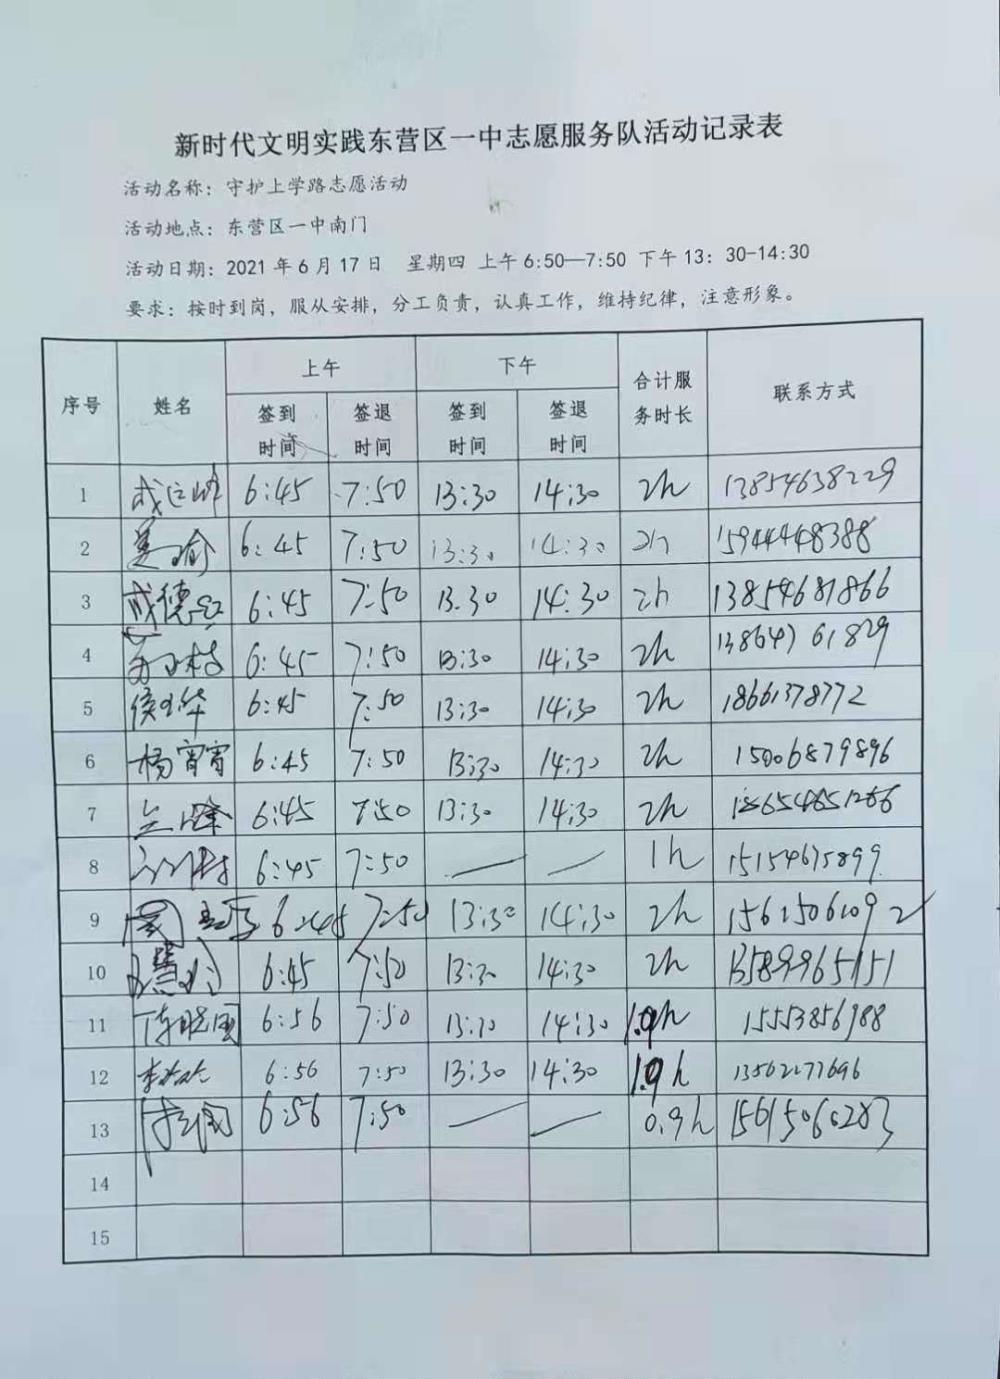 新时代文明实践东营区一中志愿服务队活动记录表
活动名称：守护上学路志愿活动
活动地点：东营区一中南门
活动日期：2021年6月17日 星期四 上午6:50—7:50 下午13：30-14:30
要求：按时到岗，服从安排，分工负责，认真工作，维持纪律，注意形象。
序号 姓名 上午 下午 合计服务时长 联系方式
签到时间 签退时间 签到时间 签退时间
1 6:45 7:50 13:30 14:30 2h 13854638229
2 6:45 7:50 13:30 14:30 2h 15944448388
3 6:45 7:50 13.30 14:30 2h 13854681866
4 6:45 7:50 13:30 14:30 2h 13864761829
5 6:45 7:50 13:30 14:30 2h 18661378772
6 杨宵宵 6:45 7:50 13:30 14:30 2h 15006879896
7 6:45 7:50 13:30 14:30 2h
8 6:45 7:50 — — 1h 15154675899
9 6:45 7:50 13:30 14:30 2h 15615061092
10 6:45 7:50 13:30 14:30 2h 13589965151
11 6:56 7:50 13:30 14:30 1.9h 15553856988
12 6:56 7:50 13:30 14:30 1.9h 13562277696
13 6:56 7:50 — — 0.9h 15615060283
14
15